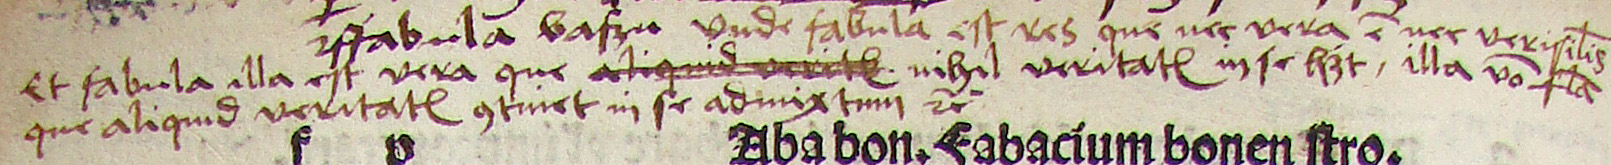 fabula Unde fabula est res que nec vera ē nec verisilis
Et fabula illa est vera que aliquid veritat nihil veritat in se hȝt, illa vo fla
que aliquid veritat ꝯtinet in se admixtum ꝛc
f p Aba bon. Fabacium bonen stro.